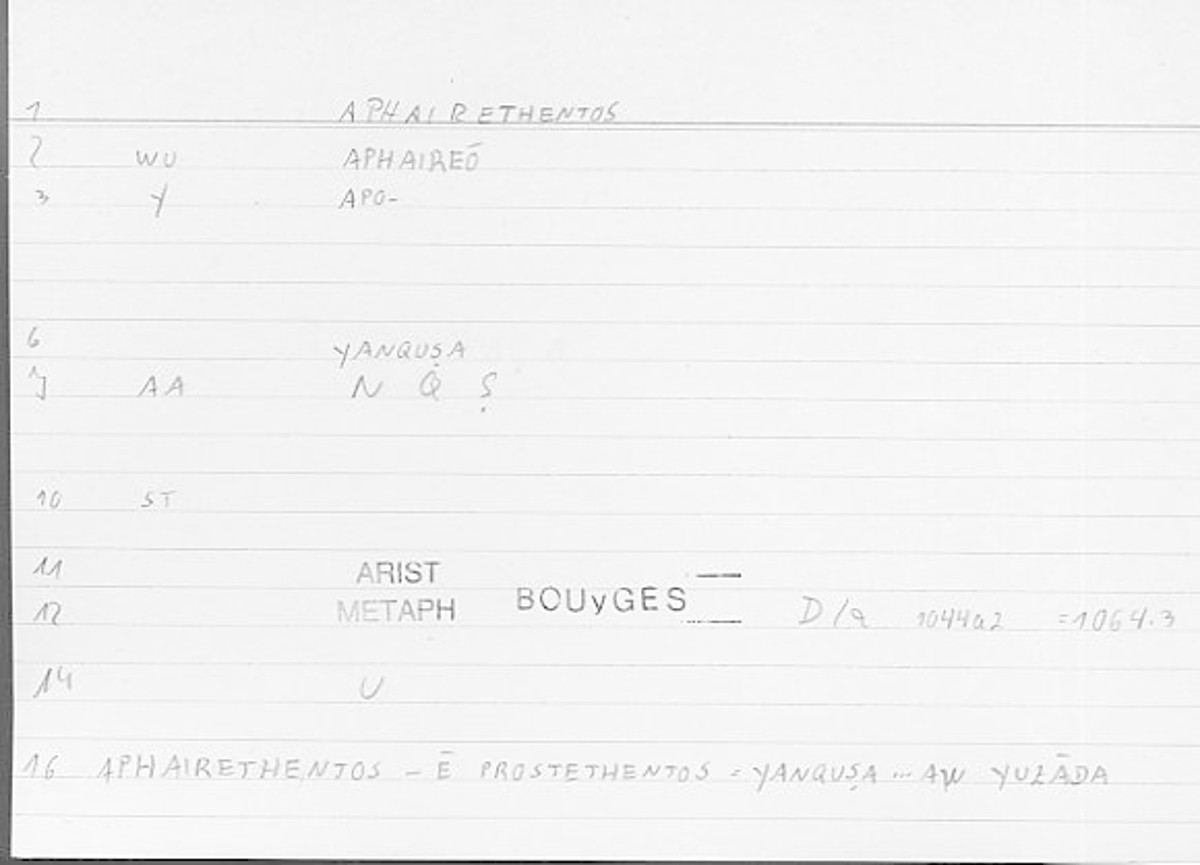 1 APHAIRETHENTOS
2 WU APHAIREŌ
3 Y APO-
6 YANQUṢA
7 AA N Q Ṣ
10 ST
11 ARIST
12 METAPH BOUyGES D/a 1044a2 =1064.3
14 U
16 APHAIRETHENTOS - Ē PROSTETHENTOS = YANQUṢA ... AW YUZĀDA